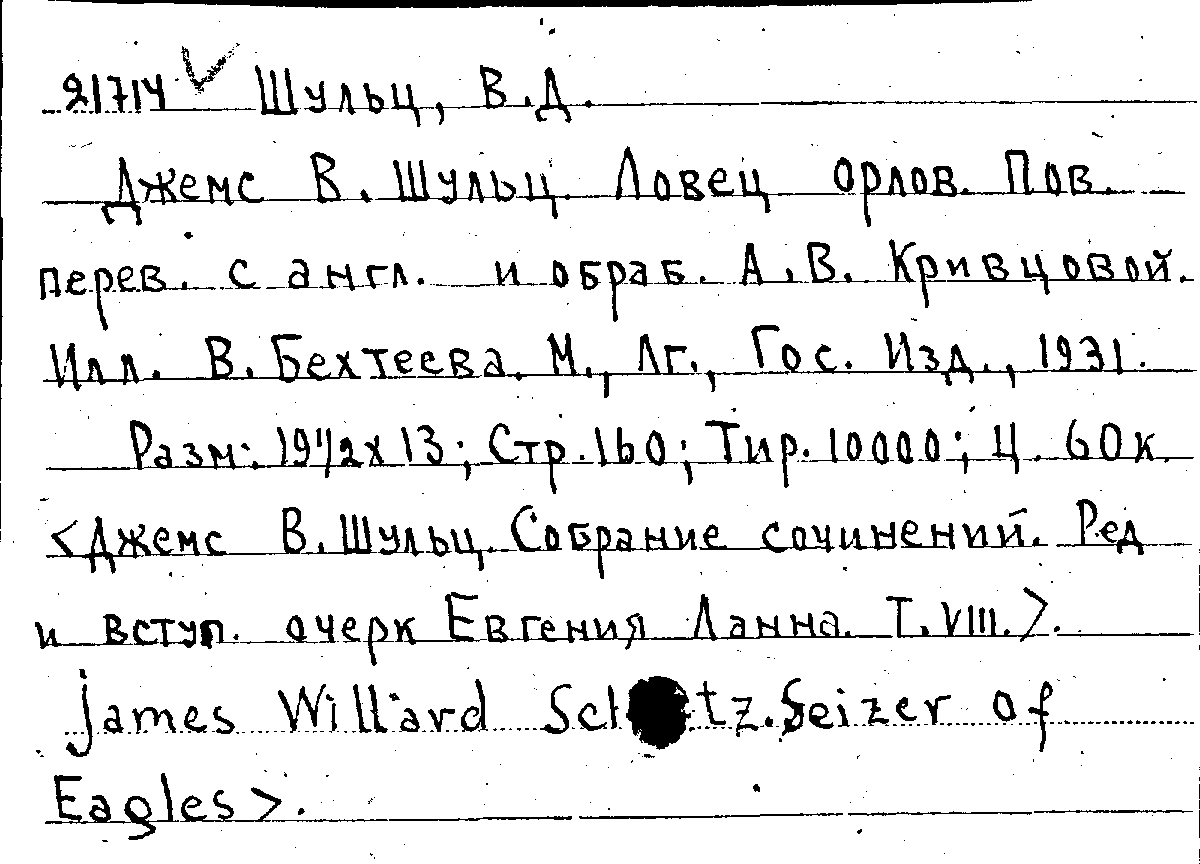 21714 ✓ Шульц, В.Д.
Джемс В. Шульц. Ловец орлов. Пов.
перев. с англ. и обраб. А.В. Кривцовой.
Илл. В. Бехтеева. М., Лг., Гос. Изд., 1931.
Разм: 19 1/2 x 13; Стр. 160; Тир. 10000; Ц. 60 к.
<Джемс В. Шульц. Собрание сочинений. Ред
и вступ. очерк Евгения Ланна. Т. VIII.>.
James Willard Seizer of
Eagles>.